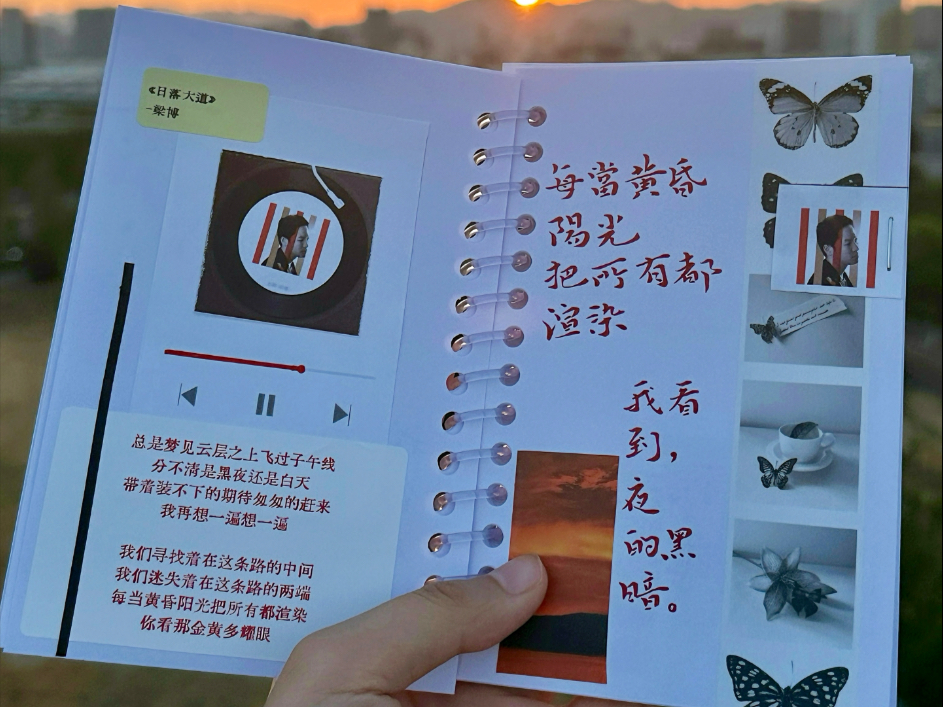 《日落大道》
-梁博
总是梦见云层之上飞过子午线
分不清是黑夜还是白天
带着装不下的期待匆匆的赶来
我再想一遍想一遍
我们寻找着在这条路的中间
我们迷失着在这条路的两端
每当黄昏阳光把所有都渲染
你看那金黄多耀眼
每當黄昏
陽光
把所有都
渲染
我看
到，
夜
的黑
暗。